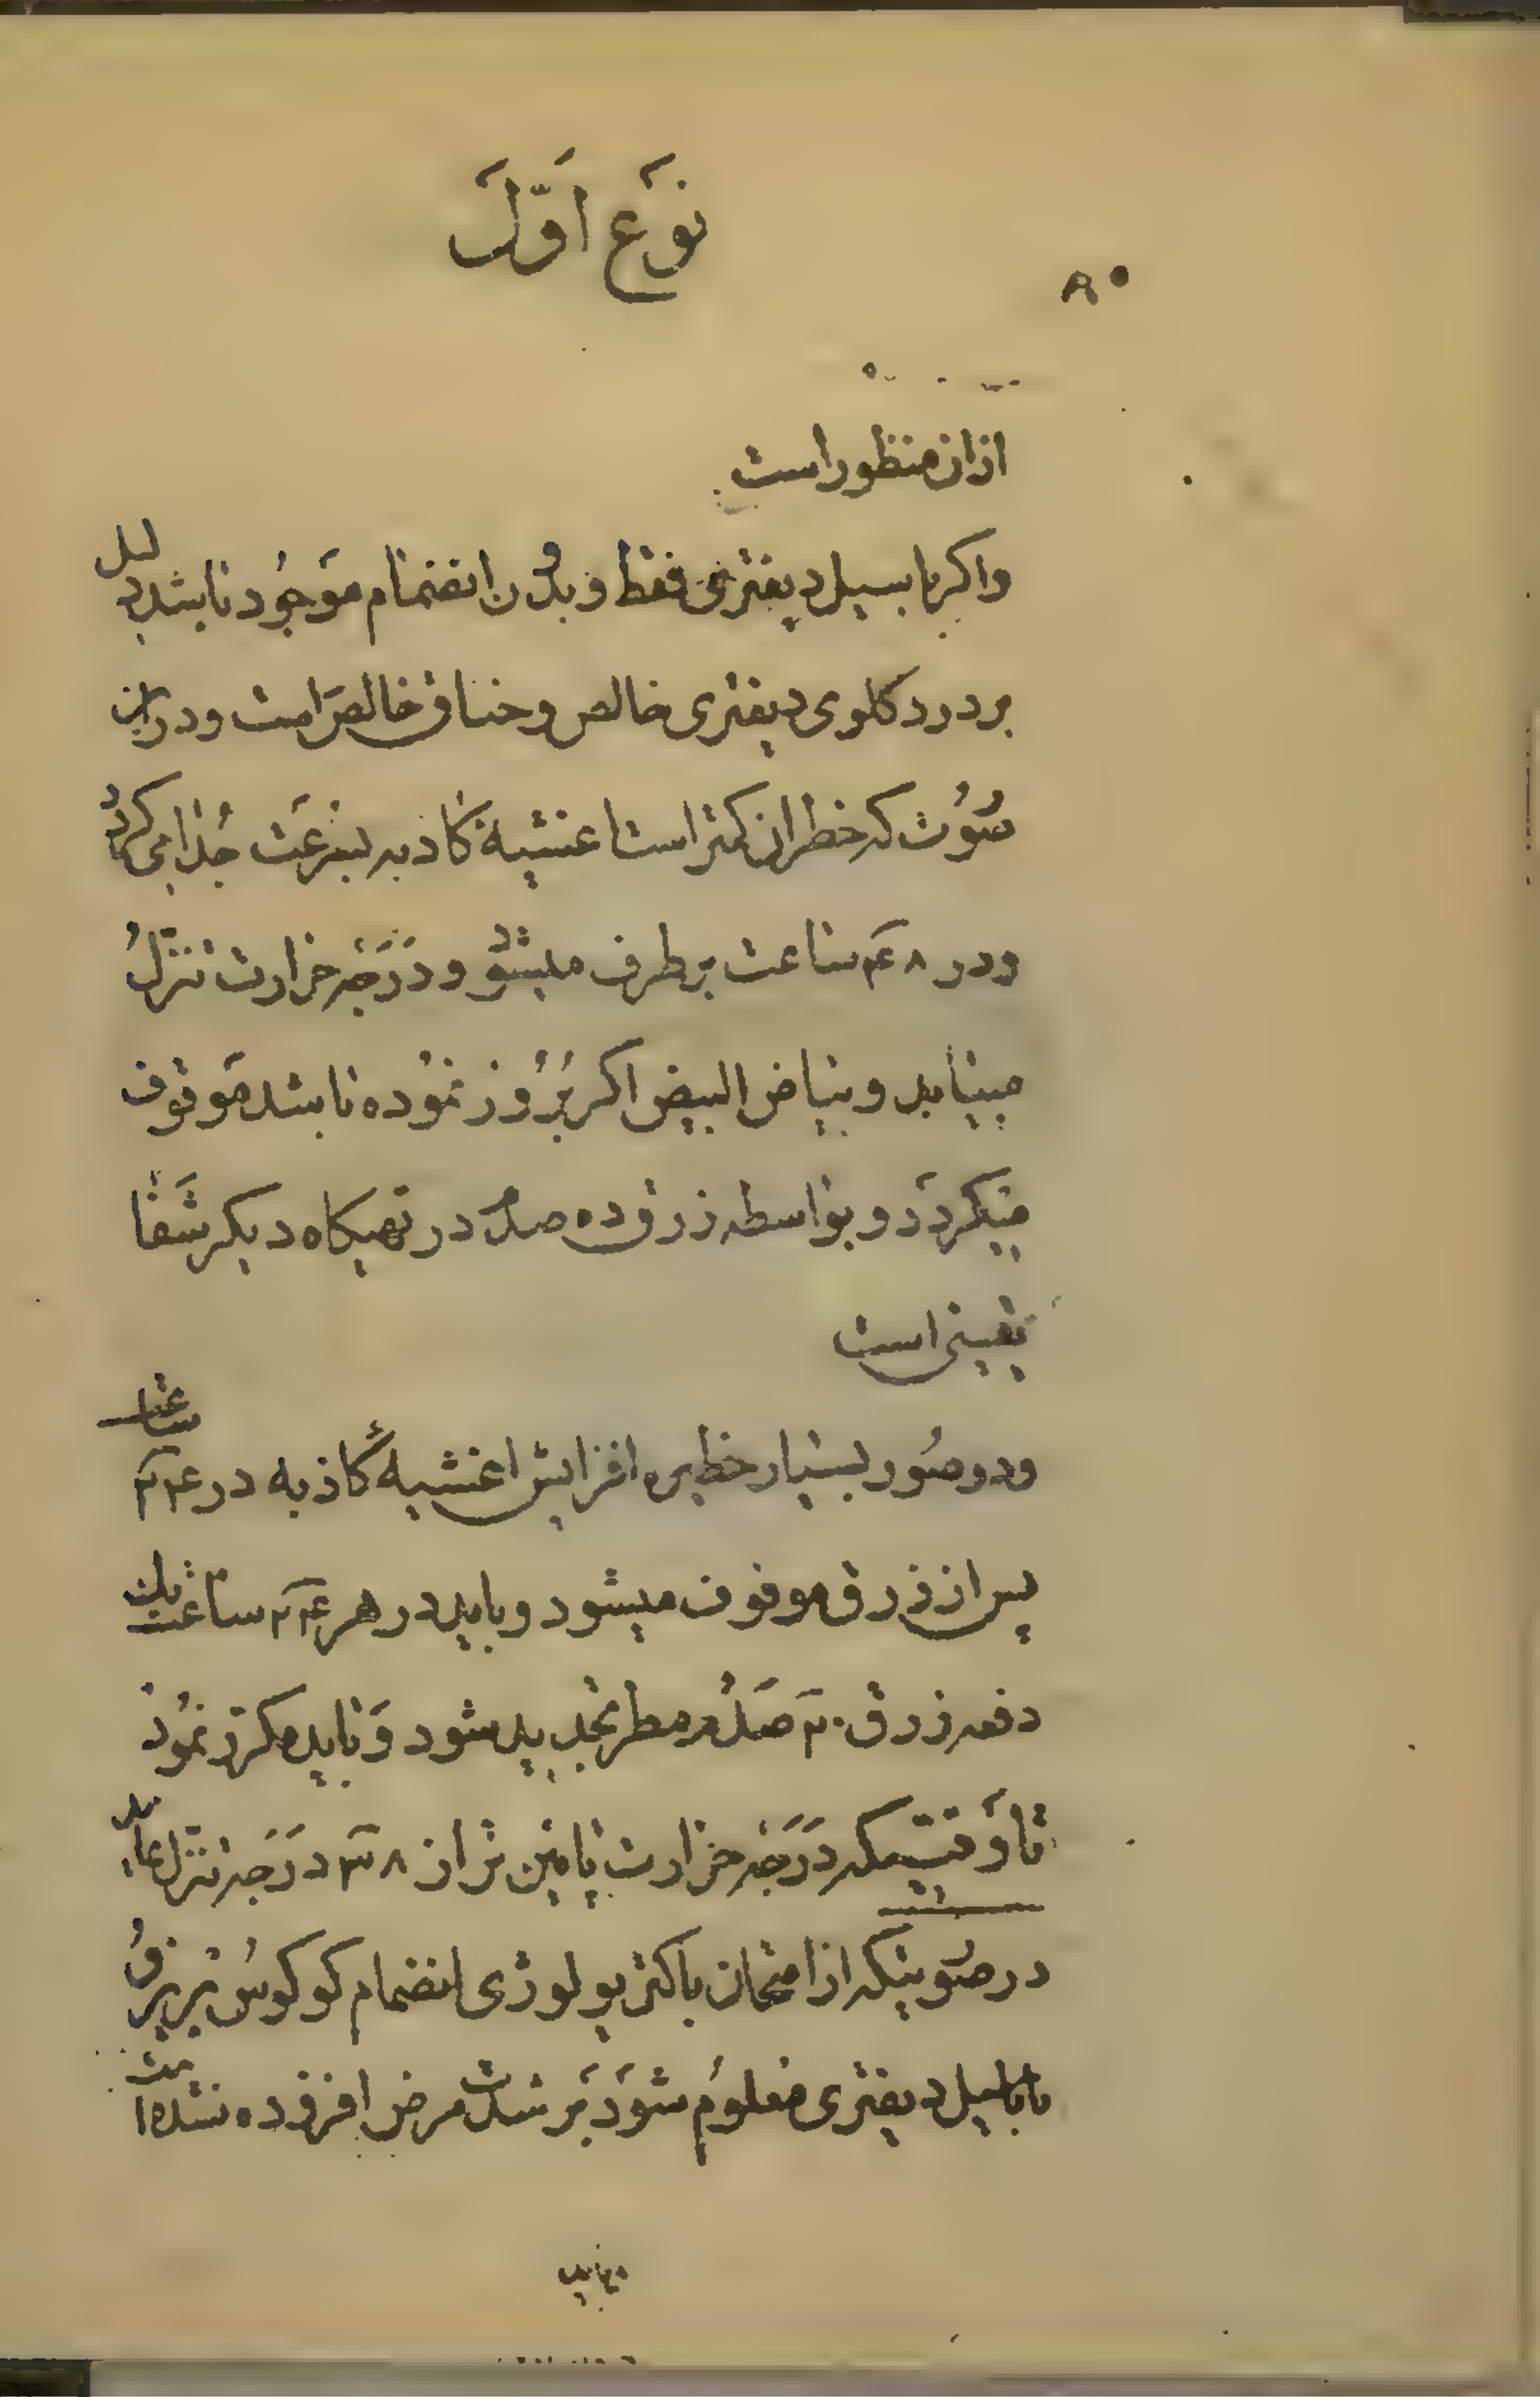 نوَع اَوَّلَ
۸۰
ازان منظور است
واکر باسیل دیفتری فقط و بدُون انضمام موَجوُد باشد دلیل
بر درد کلوی دیفتری خالص و خناق خالصَ است و دراین
صوُرت که خطر ان کمتر است اغشیهٔ کاذبه بسرعَت جُدا می کردُد
ودر ۴۸ ساعت بر طرف میشوَد و دَرَجَه حرارت تنزّلُ
مینماید و بیاض البیض اکر برُوُز نموُده باشد موَقوف
میکردَد و بواسطه زرق ده صدُم در تهیکاه دیکر شَفا
یقینی است
ودر صوُر بسیار خطیره افزایش اغشیهٔ کاذبه در ۲۴ ساعت
پس از زرق موقوف میشود و باید در هر ۲۴ ساعت یک
دفعه زرق ۲۰ صَدُم مطر تجدید شود وَ باید مکرّر نموُد
تا وَقتیکه دَرَجَه حرارت پایین تر از ۳۸ دَرَجَه تنزّل نماید
در صوُرتیکه از امتحان باکتریولوژی انضمام کوکوسُ بریزوُ
با باسیل دیفتری معلوُم شوَد بَر شدّت مرض افزوده شده است
نماید